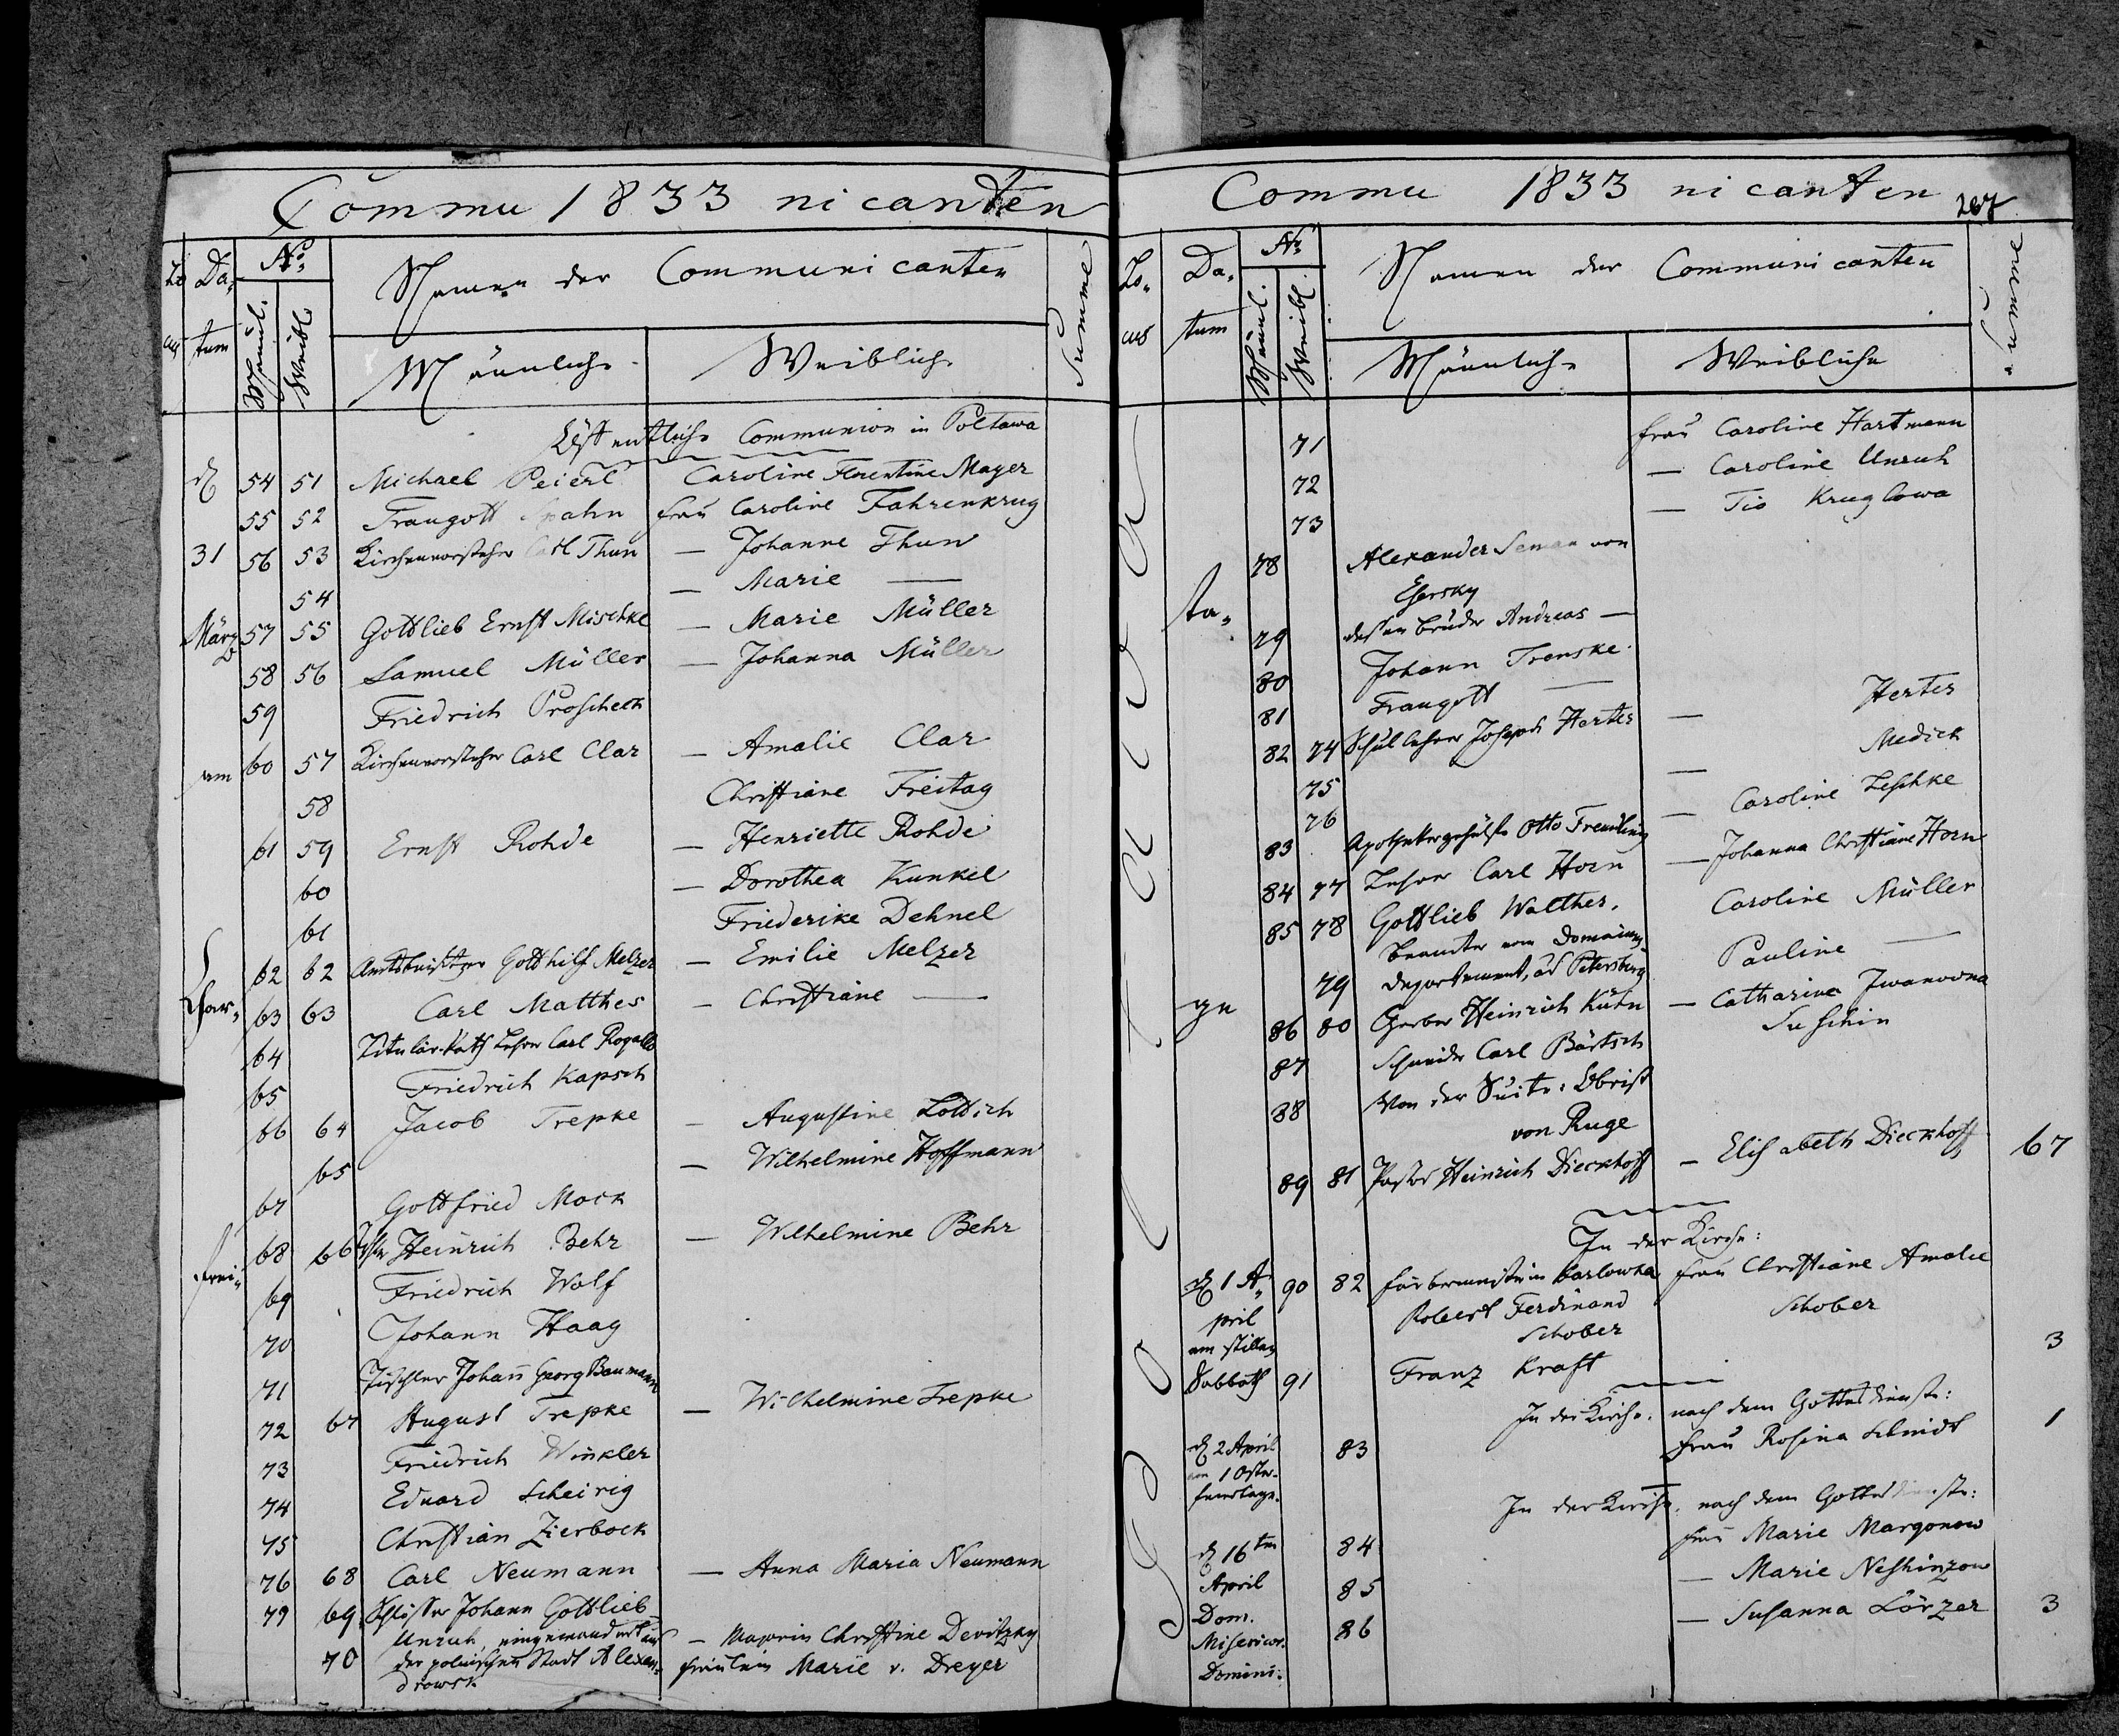 Commu 1833 nicanten
Lo Da- No. Namen der Communicanten Summe
cus tum Männl. Weibl. Männliche Weibliche
Öffentliche Communion in Poltawa
d 54 51 Michael Peierl Caroline Florentine Mayer
55 52 Traugott Spahn Frau Caroline Fahrenkrug
31 56 53 Kirchenvorsteher Carl Thun — Johanne Thun
54 — Marie —
März 57 55 Gottlieb Ernst Mischke — Marie Müller
58 56 Samuel Müller — Johanna Müller
59 Friedrich Proscheck
am 60 57 Kirchenvorsteher Carl Clar — Amalie Clar
58 Christiane Freitag
61 59 Ernst Rohde — Henriette Rohde
60 — Dorothea Kunkel
61 Friederike Dehnel
62 62 Gotthilf Melzer — Emilie Melzer
Char- 63 63 Carl Matthes — Christiane —
64 Titulär-Rath Lehrer Carl Rogalls
65 Friedrich Kapsch
66 64 Jacob Trepke — Augustine Lottich
65 — Wilhelmine Hoffmann
67 Gottfried Mock
frei- 68 66 Heinrich Behr — Wilhelmine Behr
69 Friedrich Wolf
70 Johann Haag
71 Tischler Johann Georg Baumann
72 67 August Trepke — Wilhelmine Trepke
73 Friedrich Winkler
74 Eduard Scheirig
75 Christian Zierbock
76 68 Carl Neumann — Anna Maria Neumann
79 69 Schlosser Johann Gottlieb
Unruh, eingewandert aus — Majorin Christine Devitzky
70 der polnischen Stadt Alexan- Fräulein Marie v. Dreyer
drowsk.
Commu 1833 nicanten 267
Lo- Da- No. Namen der Communicanten Summe
cus tum Männl. Weibl. Männliche Weibliche
Poltawa
71 Frau Caroline Hartmann
72 — Caroline Unruh
73 — Tio Kruglowa
78 Alexander Seman von
Esersky
ta- 79 dessen Bruder Andreas —
80 Johann Trenske
81 Traugott —
82 74 Schullehrer Joseph Herter — Herter
75 — Medick
76 — Caroline Leschke
83 Apothekergehülfe Otto Fremling
84 77 Lehrer Carl Horn — Johanna Christiane Horn
85 78 Gottlieb Walther, Caroline Müller
Beamter vom Domainen-
79 departement, aus Petersburg Pauline —
ge 86 80 Gerber Heinrich Kühn — Catharina Iwanowna
Suschin
87 Schneider Carl Bärtsch
88 Von der Suite: Obrist
von Ruge
89 81 Pastor Heinrich Dieckhoff — Elisabeth Dieckhoff 67
In der Kirche:
d 1 A- 90 82 Färbermeister in Karlowka Frau Christiane Amalie
pril Robert Ferdinand Schober
am stillen Schober 3
Sabbath 91 Franz Kraft
In der Kirche, nach dem Gottesdienste:
d 2 April 83 Frau Rosina Schmidt 1
am 1 Oster-
feiertage.
In der Kirche, nach dem Gottesdienste:
d 16ten 84 Frau Marie Margonow
April 85 — Marie Neshinzow
Dom. 86 — Susanna Lörzer 3
Misericor.
Domini.